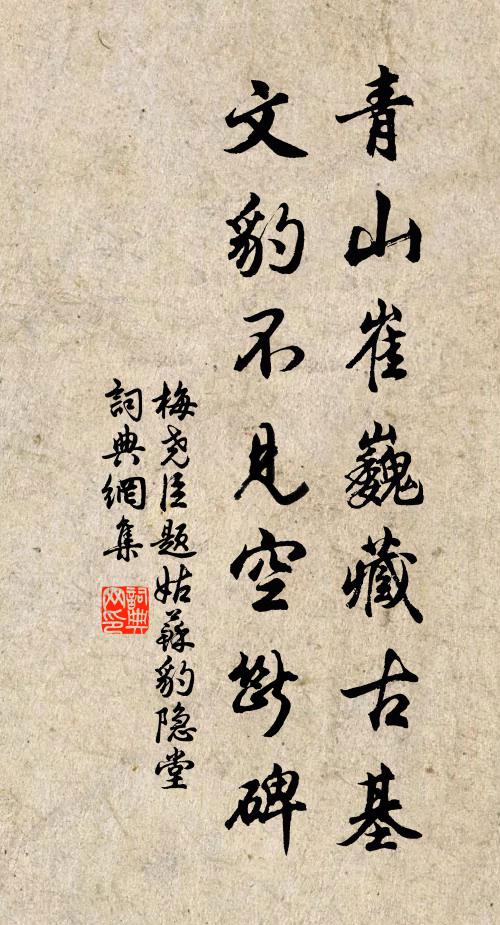 青山崔巍藏古基
文豹不見空斷碑
梅堯臣題姑蘇豹隐堂
詞典網集
詞典網印